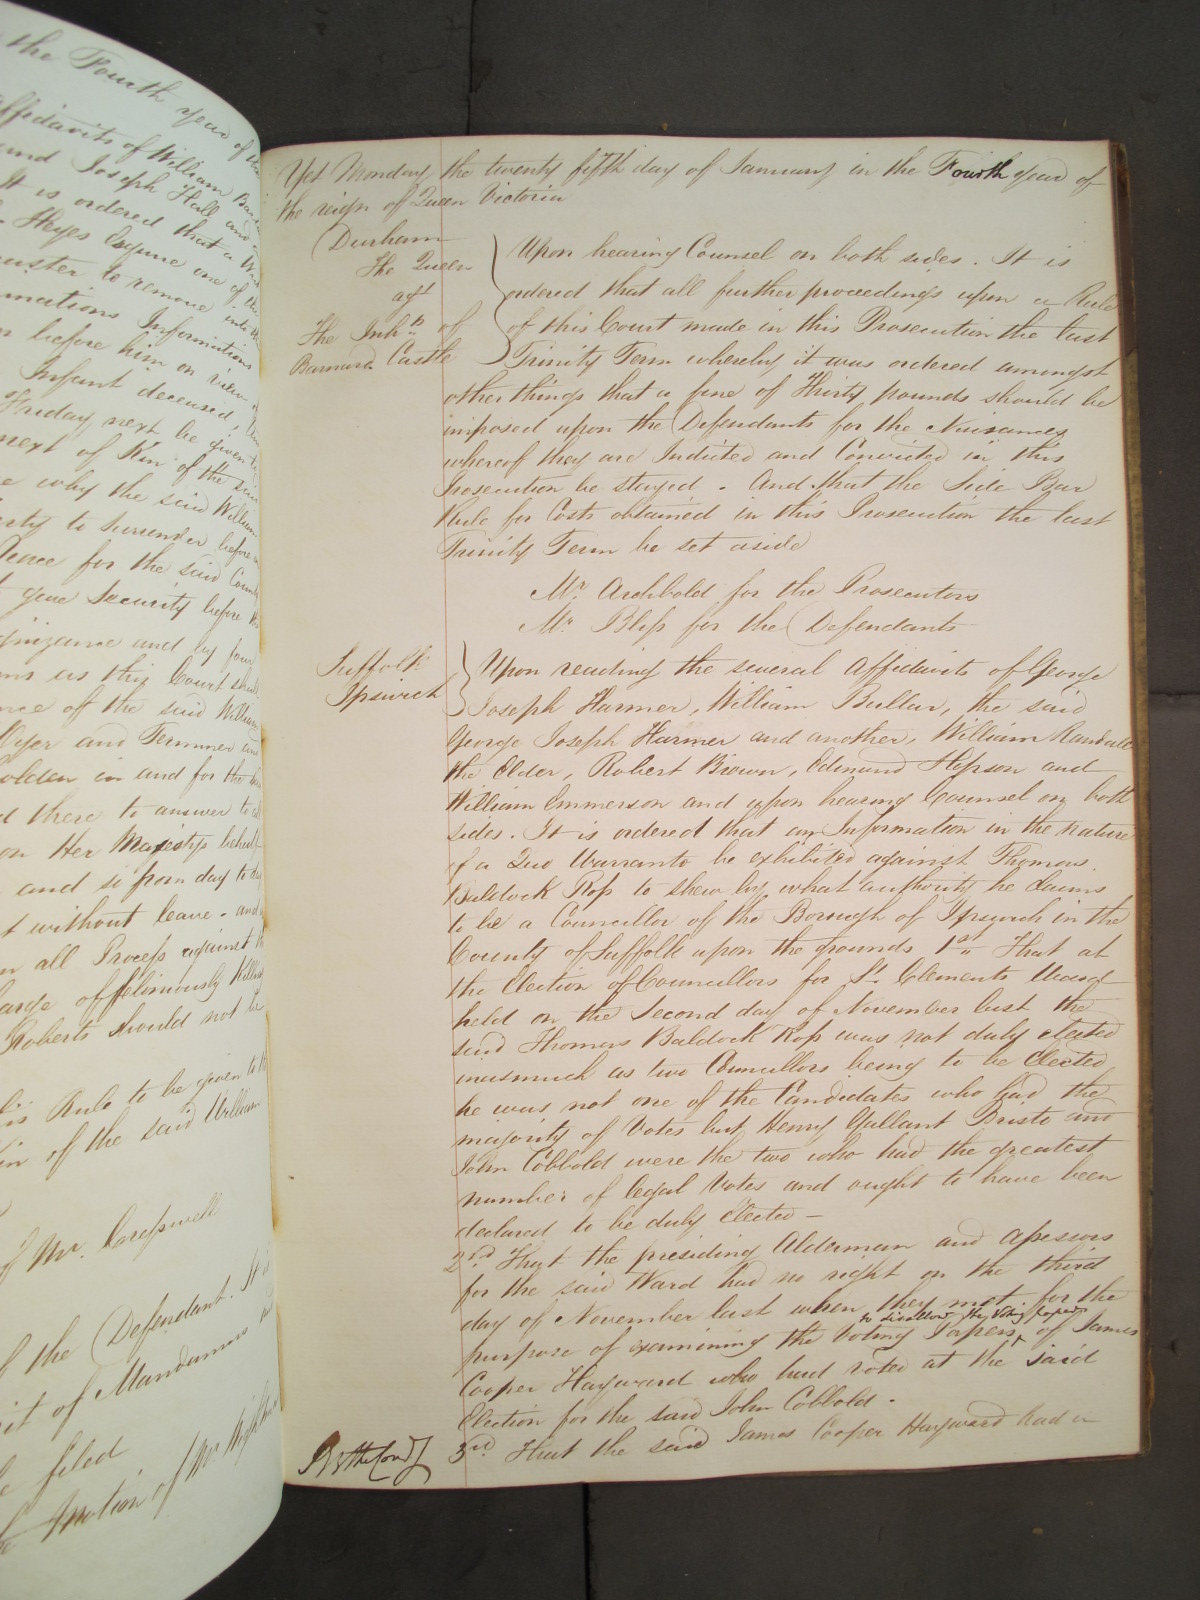 the Fourth year of the
Affidavits of William
and Joseph Hall and
It is ordered that a
Heyes Esquire one of the
to remove into the
Informations
before him on view of
Infant deceased,
Friday next be given to
next of Kin of the said
why the said William
to surrender before
Peace for the said County
give Security before
and by four
as this Court shall
of the said William
Oyer and Terminer and
holden in and for the
there to answer to
on Her Majestys behalf
and so from day to day
without leave. and
all Process against the
charge of feloniously Killing
Roberts should not be
Rule to be given to the
of the said William
of Mr. Cresswell
the Defendant. It is
of Mandamus
filed
motion of Mr.
Yet Monday the twenty fifth day of January in the Fourth year of
the reign of Queen Victoria
Durham
The Queen
agt
The Inhts of
Barnard Castle
Upon hearing Counsel on both sides. It is
ordered that all further proceedings upon a Rule
of this Court made in this Prosecution the last
Trinity Term whereby it was ordered amongst
other things that a fine of Thirty pounds should be
imposed upon the Defendants for the Nuisances
whereof they are Indicted and Convicted in this
Prosecution be stayed. And that the Side Bar
Rule for Costs obtained in this Prosecution the last
Trinity Term be set aside
Mr. Archbold for the Prosecutors
Mr. Bliss for the Defendants
Suffolk
Ipswich
Upon reading the several Affidavits of George
Joseph Harmer, William Bullar, the said
George Joseph Harmer and another, William Randall
the Elder, Robert Brown, Edmund Jepson and
William Emmerson and upon hearing Counsel on both
sides. It is ordered that an Information in the nature
of a Quo Warranto be exhibited against Thomas
Baldock Ross to shew by what authority he claims
to be a Councillor of the Borough of Ipswich in the
County of Suffolk upon the grounds 1st That at
the Election of Councillors for St. Clements Ward
held on the Second day of November last the
said Thomas Baldock Ross was not duly elected
inasmuch as two Councillors being to be Elected
he was not one of the Candidates who had the
majority of Votes but Henry Gallant Bristo and
John Cobbold were the two who had the greatest
number of legal Votes and ought to have been
declared to be duly Elected –
2nd That the presiding Alderman and Assessors
for the said Ward had no right on the third
day of November last when they met for the
purpose of examining the Voting Papers ‸ to disallow the Voting papers of James
Cooper Hayward who had voted at the said
Election for the said John Cobbold.
3rd That the said James Cooper Hayward had in